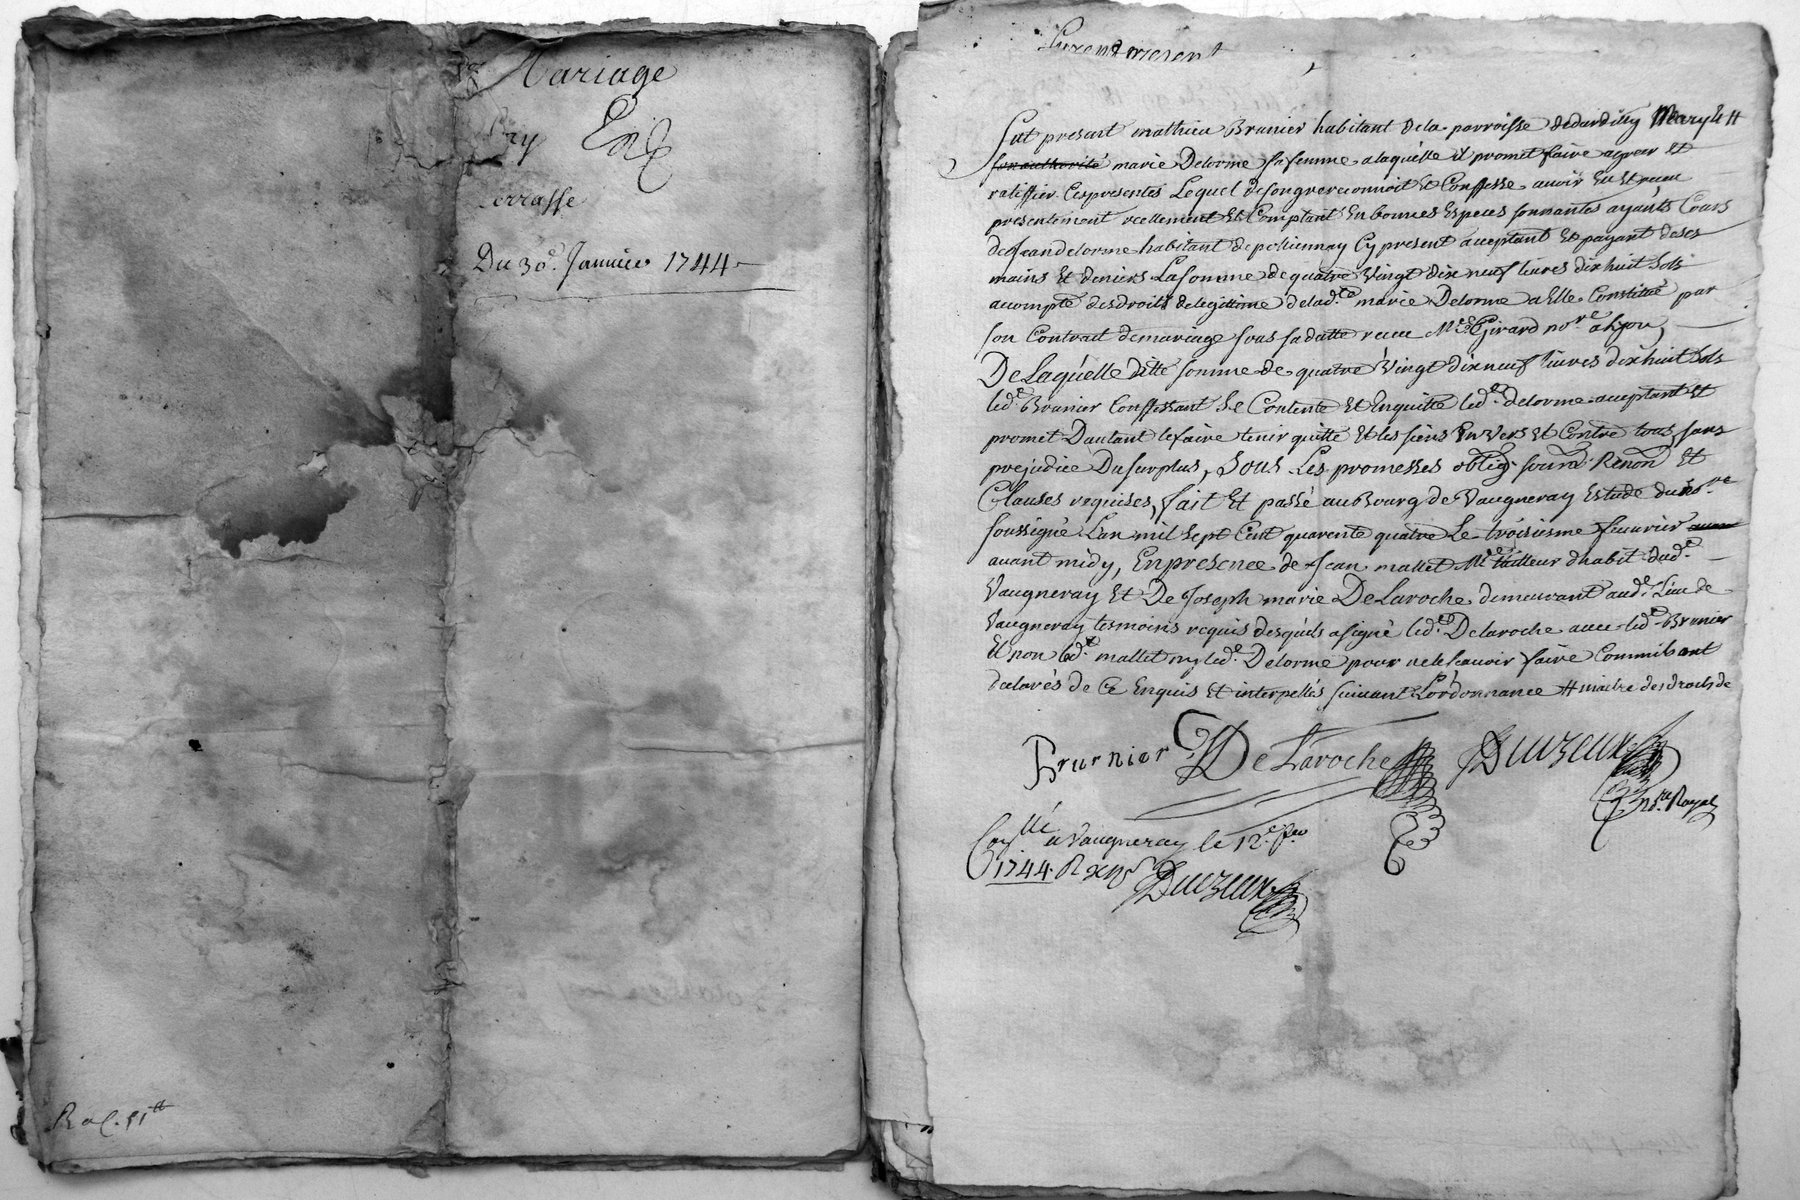 Mariage
Pry Et
Terrasse
Du 30e. Janvier 1744
present
Fut present mathieu Brunier habitant dela parroisse dedardilly Mary #
son authorité marie Delorme sa femme alaquelle il promet faire agreer et
ratiffier Cespresentes Lequel desongrereconnoit Et Confesse avoir Eu Et receu
presentement reellement Et Comptant En bonnes Especes sonnantes ayants Cours
de Jean delorme habitant depollionnay Cy present acceptant Et payant deses
mains Et deniers La somme de quatre vingt dix neuf livres dix huit sols
acompte desdroits delegittime delad.te marie Delorme a Elle Constitué par
son Contrait demariage sous sadatte receu Me Girard nore alyon,
De Laquelle ditte somme de quatre vingt dix neuf livres dix huit sols
led.t Brunier Confessant se Contente Et Enquitte led.t delorme acceptant Et
promet Dautant lefaire tenir quitte Et les siens Envers Et Contre tous, sans
prejudice Du surplus, Sous Les promesses oblig. soum. Renon Et
Clauses requises, fait Et passé au Bourg de Vaugneray Estude du no.re
soussigné Lan mil sept Cent quarente quatre Le troisiesme fevrier
avant midy, Enpresence de Jean mallet Me tailleur dhabit dud.t
Vaugneray Et De Joseph marie DeLaroche demeurant aud.t Lieu de
Vaugneray tesmoins requis desquels asigné led.t Delaroche avec led.t Brunier
Et non led.t mallet ny led.t Delorme pour nelesçavoir faire Comme ils ont
declarés de Ce Enquis Et interpellés suivant Lordonnance # maitre des droits de
Brunier DeLaroche Duvzeux
no.re Royal
Con.llé a Vaugneray le 12e. fev.
1744. R
Duvzeux